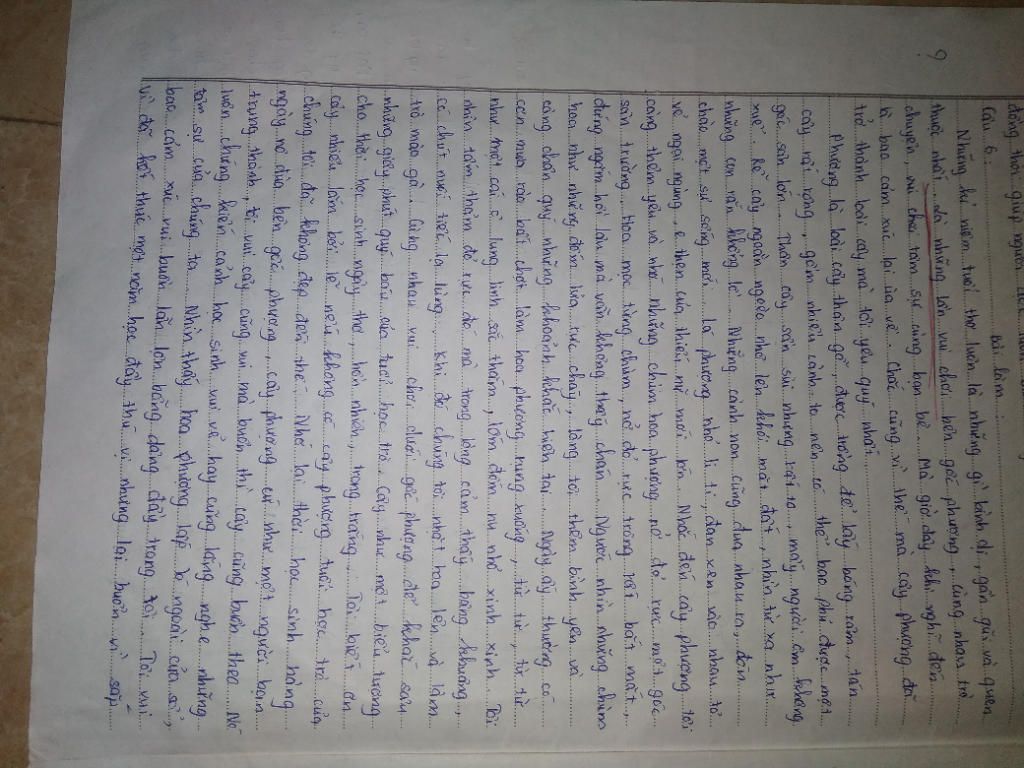 9
đồng thời giúp người
Câu 6: Bài làm:
Những kỉ niệm tuổi thơ luôn là những gì bình dị, gần gũi và quen
thuộc nhất, đó những lần vui chơi bên gốc phượng, cùng nhau trò
chuyện, vui chơi tâm sự cùng bạn bè. Mà giờ đây khi nghĩ đến
là bao cảm xúc lại ùa về. Chắc cũng vì thế mà cây phượng đã
trở thành loài cây mà tôi yêu quý nhất.
Phượng là loài cây thân gỗ, được trồng để lấy bóng râm, tán
cây rất rộng, gồm nhiều cành to nên có thể bao phủ được một
góc sân lớn. Thân cây sần sùi nhưng rất to, mấy người ôm không
xuể. Rễ cây ngoằn ngoèo nhô lên khỏi mặt đất, nhìn từ xa như
những con rắn khổng lồ. Những cành non cũng đua nhau ra, đón
chào một sự sống mới. Lá phượng nhỏ li ti, đan xen vào nhau tỏ
vẻ ngại ngùng, e thẹn của thiếu nữ mới lớn. Nhắc đến cây phượng tôi
càng thêm yêu và nhớ những chùm hoa phượng nở đỏ rực một góc
sân trường. Hoa mọc từng chùm, nở đỏ rực trông rất bắt mắt,
đứng ngắm hồi lâu mà vẫn không thấy chán. Ngước nhìn những chùm
hoa như những đốm lửa rực cháy, lòng tôi thêm bình yên và
càng chân quý những khoảnh khắc hiện tại. Ngày ấy thường có
cơn mưa rào bất chợt làm hoa phượng rụng xuống, từ từ, từ từ
như một cái lung linh sắc thắm, lốm đốm nụ nhỏ xinh xinh. Tôi
nhìn tấm thảm đỏ rực đó mà trong lòng cảm thấy bâng khuâng,
có chút nuối tiếc lạ lùng. Khi đó chúng tôi nhặt hoa lên và làm
trò mào gà. Cùng nhau vui chơi dưới gốc phượng để khắc sâu
những giây phút quý báu của tuổi học trò. Cây như một biểu tượng
cho thời học sinh ngây thơ, hồn nhiên, trong trắng. Tôi biết ơn
cây nhiều lắm bởi lẽ nếu không có cây phượng tuổi học trò của
chúng tôi đã không đẹp đến thế. Nhớ lại thời học sinh hàng
ngày nô đùa bên gốc phượng, cây phượng cứ như một người bạn
trung thành, tôi vui cây cũng vui mà buồn thì cây cũng buồn theo. Nó
luôn chứng kiến cảnh học sinh vui vẻ hay cũng lắng nghe những
tâm sự của chúng ta. Nhìn thấy hoa phượng lấp ló ngoài cửa sổ,
bao cảm xúc vui buồn lẫn lộn bỗng dâng đầy trong tôi. Tôi vui
vì đã kết thúc một năm học đầy thú vị nhưng lại buồn vì sắp